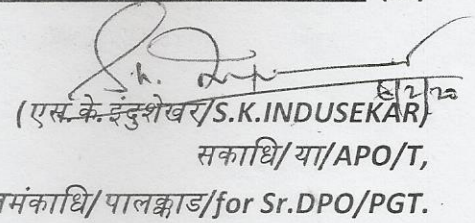 (एस.के.इंदुशेखर/S.K.INDUSEKAR)
सकाधि/ या/APO/T,
मंकाधि/ पालक्काड/for Sr.DPO/PGT.